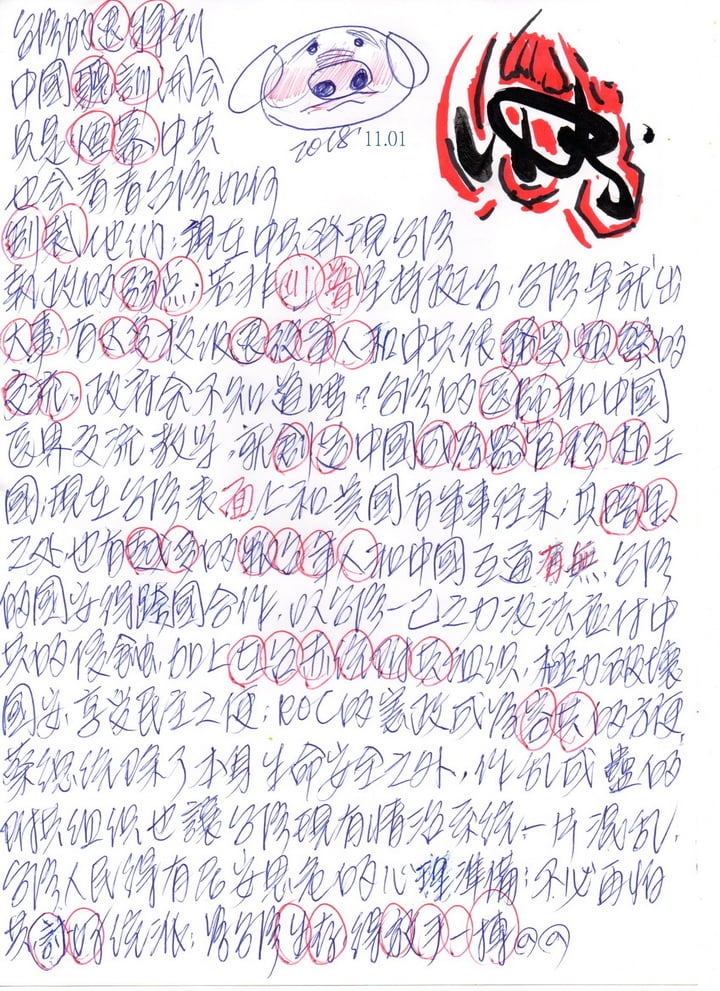 台灣的退將到
中國聽訓開会
只是煙幕中共
2018 11.01
也会看看台灣如何
制裁他們;現在中共發現台灣
執政的弱点;若非川普坚持挺台,台灣早就出
大事;有太多校级退役軍人和中共很
交流。政府会不知道嗎?台灣的医師和中國
医界交流教学,就創造中國成為器官移植王
國;現在台灣表面上和美國有軍事往来;其暗里
之处也有的軍人和中國互通有無,台灣
的國安得跨國合作,以台灣一己之力没法应付中
共的侵蝕,加上在台亦统附共组织,極力破壞
國安,享受民主之便;ROC的憲政成為共的方便
蔡總统除了本身生命安全之外,作乱成的
附共组织也讓台灣現有情治系统一片混乱,
台灣人民得有居安思危的心理準備;不必再怕
共討好统派;為台灣生存得放手一搏